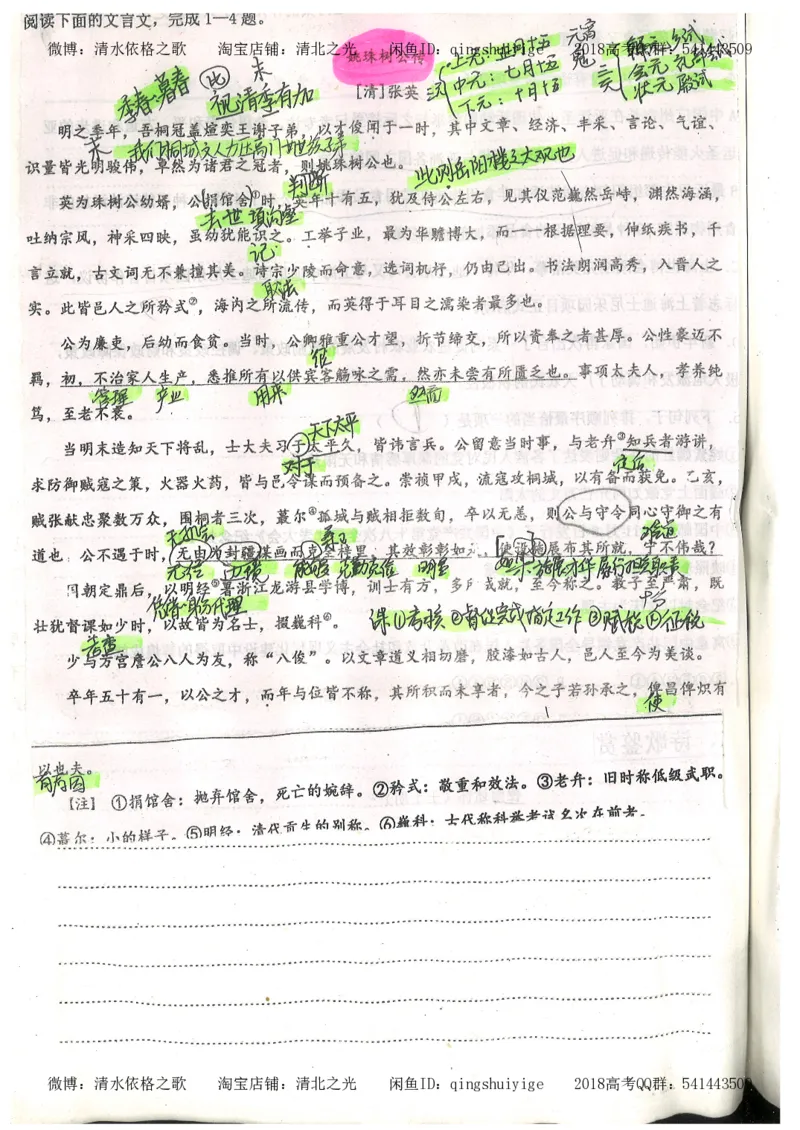 阅读下面的文言文，完成1—4题。
微博：清水依格之歌 淘宝店铺：清北之光 闲鱼ID：qingshuiyige 2018高考QQ群：541443509
姚珠树公传
上元：正月十五
中元：七月十五
下元：十月十五
三元
会元
状元 殿试
季春:暮春
此
末
视清季有加
[清]张英
明之季年，吾桐冠盖煊奕王谢子弟，以才俊闻于一时，其中文章、经济、丰采、言论、气谊、
识量皆光明骏伟，卓然为诸君之冠者，则姚珠树公也。
此则岳阳楼之大观也
判断
英为珠树公幼婿，公捐馆舍①时，英年十有五，犹及侍公左右，见其仪范巍然岳峙，渊然海涵，
去世
吐纳宗风，神采四映，虽幼犹能识之。工举子业，最为华赡博大，而一一根据理要，伸纸疾书，千
记
言立就，古文词无不兼擅其美。诗宗少陵而命意、选词机杼，仍由己出。书法朗润高秀，入晋人之
取法
实。此皆邑人之所矜式②，海内之所流传，而英得于耳目之濡染者最多也。
公为廉吏，后幼而食贫。当时，公卿雅重公才望，折节缔交，所以资奉之者甚厚。公性豪迈不
羁，初，不治家人生产，悉推所有以供宾客觞咏之需，然亦未尝有所匮乏也。事项太夫人，孝养纯
管理 产业 用来 然而
笃，至老不衰。
天下太平
当明末造知天下将乱，士大夫习于太平久，皆讳言兵。公留意当时事，与老弁③知兵者游讲，
对于
求防御贼寇之策，火器火药，皆与邑令谋而预备之。崇祯甲戌，流寇攻桐城，以有备而获免。乙亥，
贼张献忠聚数万众，围桐者三次，蕞尔④孤城与贼相拒数旬，卒以无恙，则公与守令同心守御之有
道也。公不遇于时，无由为封疆谋画而克全梓里，其效彰彰如
展布其所就，宁不伟哉？
无法 边境 能够 明显
难道
国朝定鼎后，以明经⑤署浙江龙游县学博，训士有方，多
成就，至今称之。教子至严肃，既
代理
壮犹督课如少时，以故皆为名士，掇巍科⑥。
课①考核②督促完成指定工作③赋税④征税
少与方宫詹公八人为友，称“八俊”。以文章道义相切磨，胶漆如古人，邑人至今为美谈。
卒年五十有一，以公之才，而年与位皆不称，其所积而未享者，今之子若孙承之，俾昌俾炽有
使
以也夫。
有原因
【注】 ①捐馆舍：抛弃馆舍，死亡的婉辞。②矜式：敬重和效法。③老弁：旧时称低级武职。
④蕞尔：小的样子。⑤明经：清代贡生的别称。⑥巍科：古代称科举考试名次在前者。
微博：清水依格之歌 淘宝店铺：清北之光 闲鱼ID：qingshuiyige 2018高考QQ群：541443509